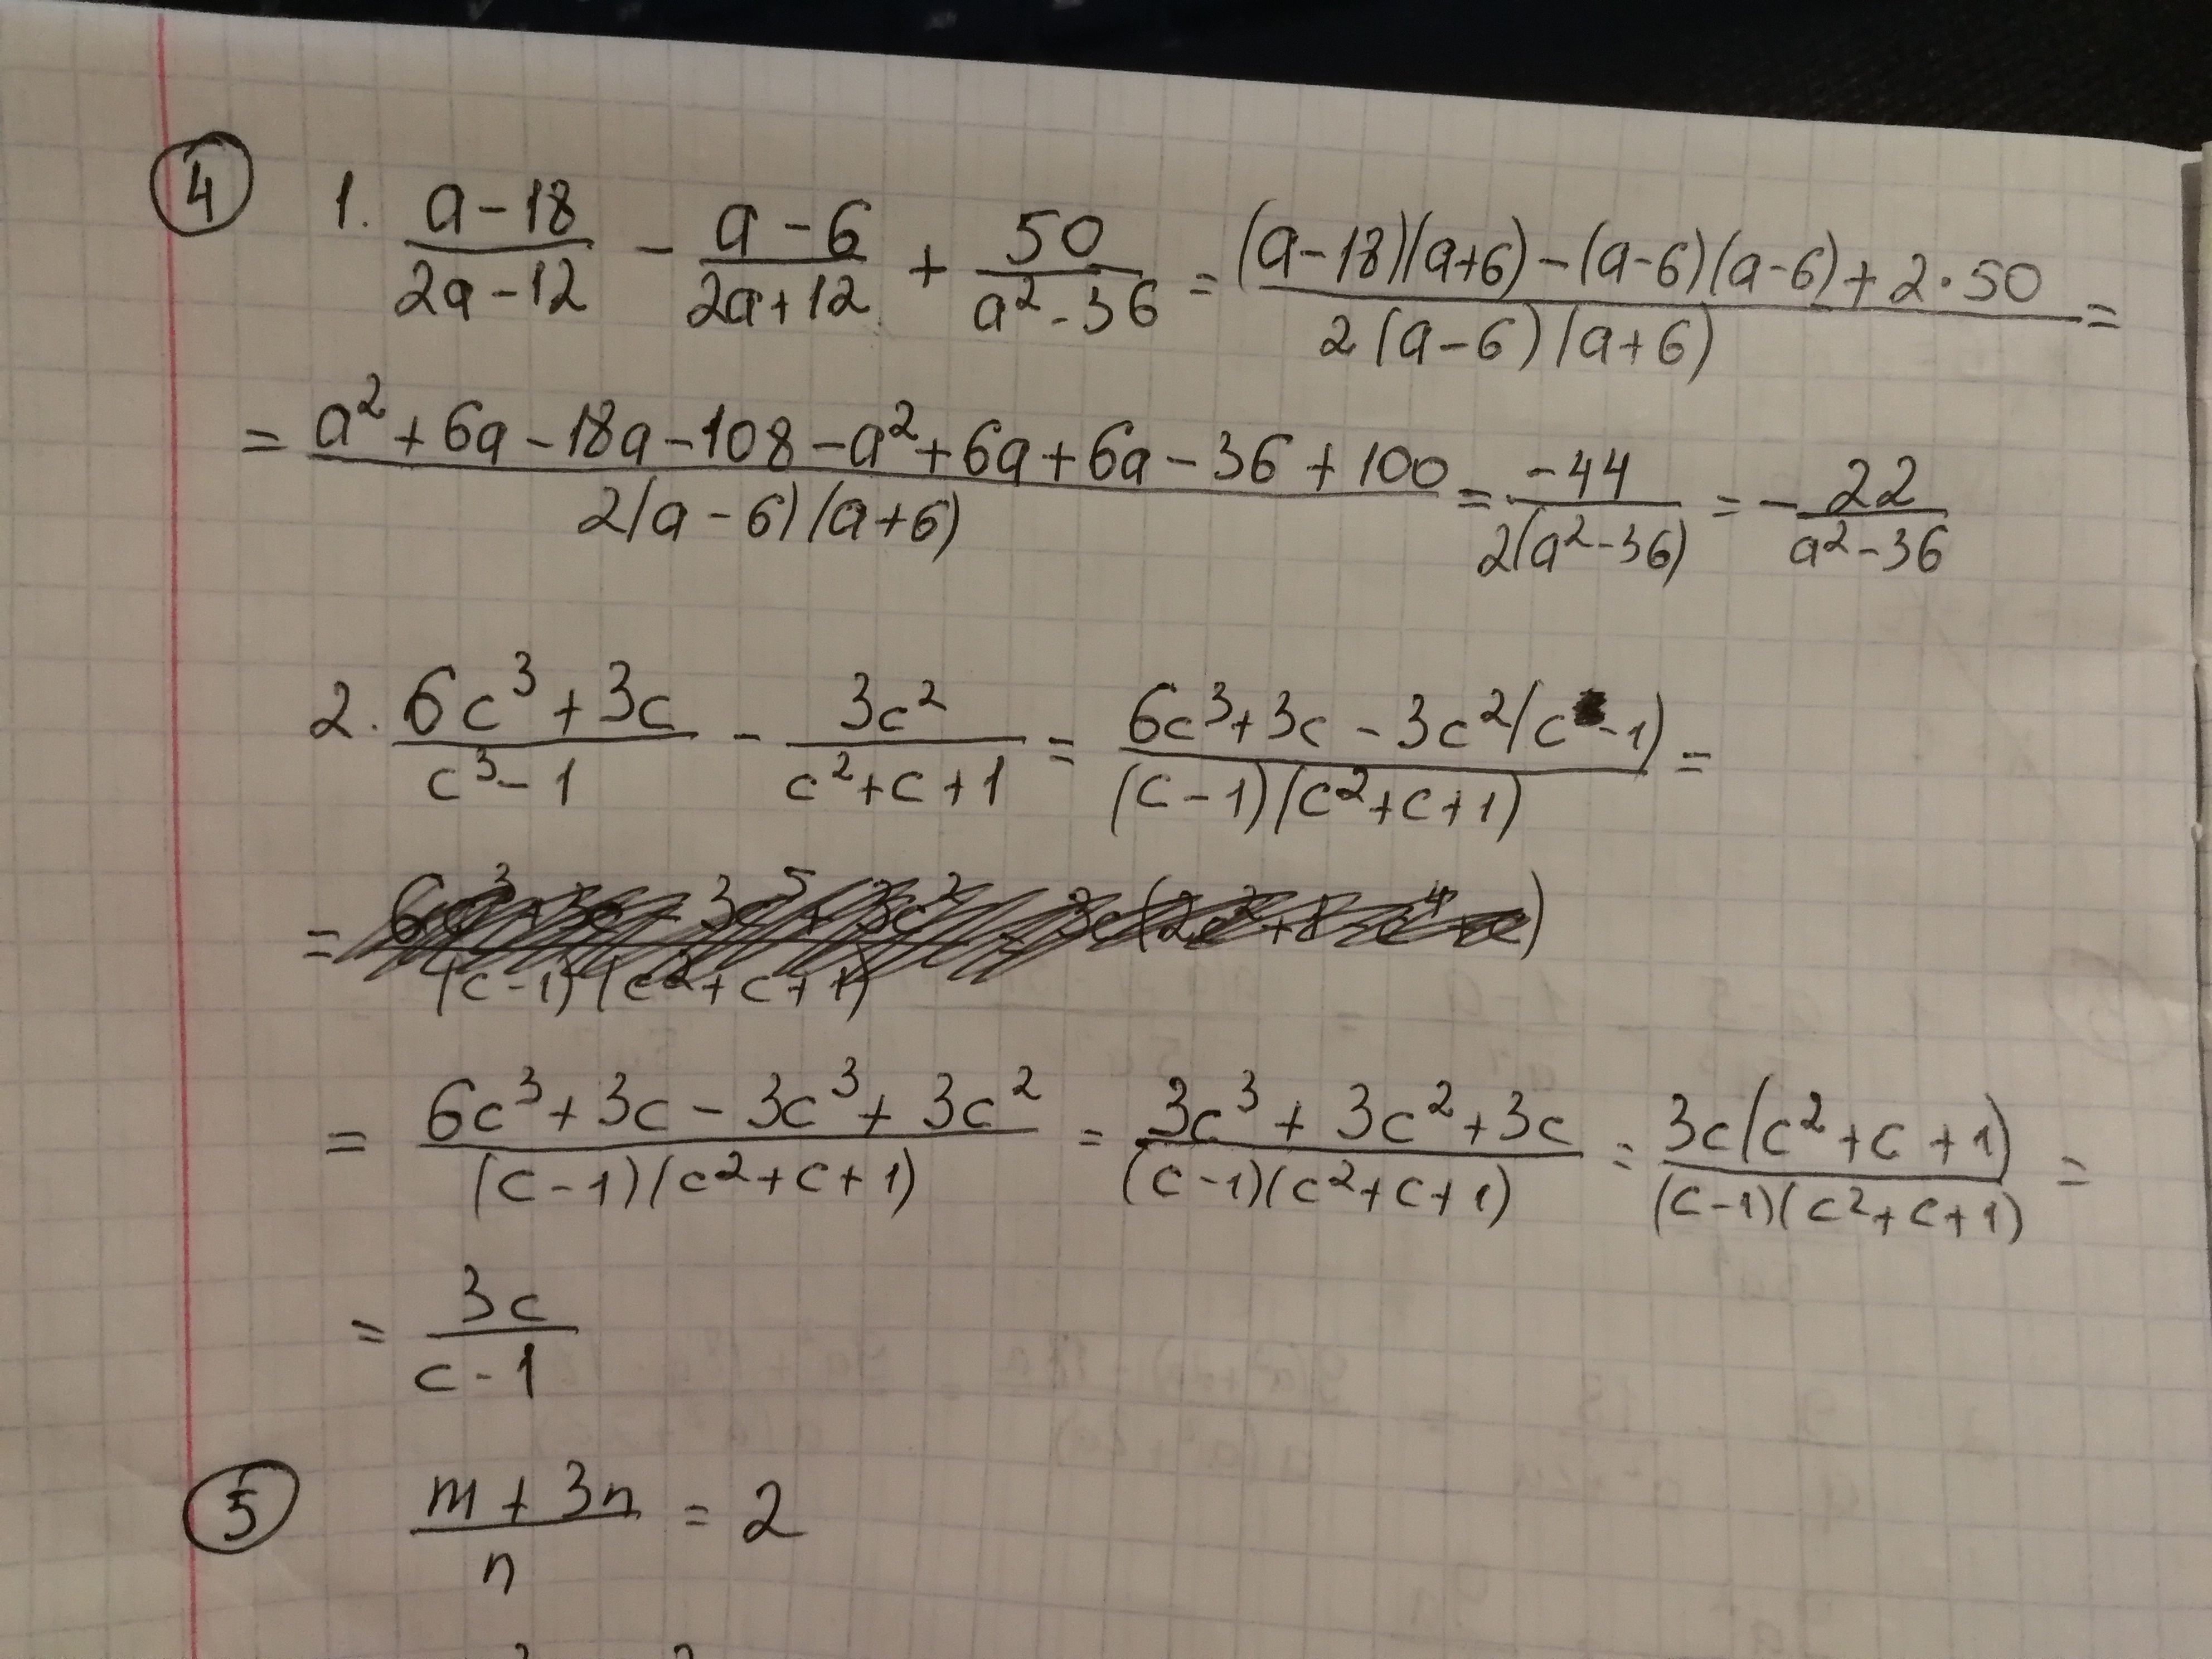 4 1. (a-18)/(2a-12) - (a-6)/(2a+12) + 50/(a²-36) = ((a-18)(a+6)-(a-6)(a-6)+2·50)/(2(a-6)(a+6)) =
= (a²+6a-18a-108-a²+6a+6a-36+100)/(2(a-6)(a+6)) = -44/(2(a²-36)) = -22/(a²-36)
2. (6c³+3c)/(c³-1) - 3c²/(c²+c+1) = (6c³+3c-3c²(c-1))/((c-1)(c²+c+1)) =
= (c-1)(c²+c+1)
= (6c³+3c-3c³+3c²)/((c-1)(c²+c+1)) = (3c³+3c²+3c)/((c-1)(c²+c+1)) = 3c(c²+c+1)/((c-1)(c²+c+1)) =
= 3c/(c-1)
5 (m+3n)/n = 2